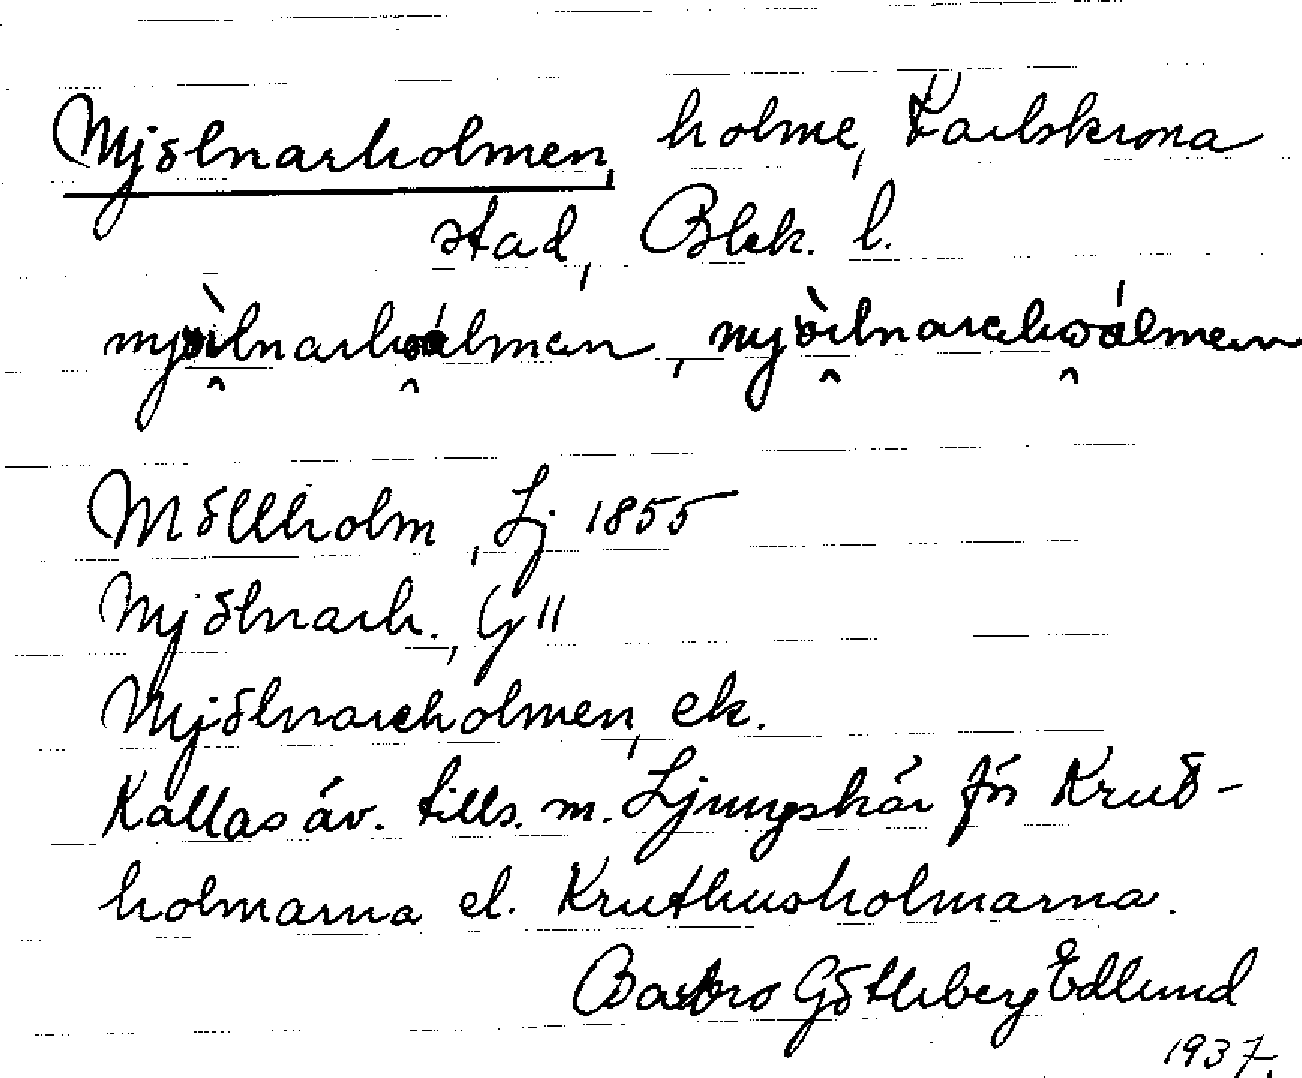 Mjölnarholmen, holme, Karlskrona
stad, Blek. l.
mjölnarholmen, mjölnareholmen
Möllholm, Lj 1855
Mjölnarh., G 11
Mjölnareholmen, ek.
Kallas äv. tills. m. Ljungskär för Krut-
holmarna el. Kruthusholmarna.
Götlind Edlund
1937.